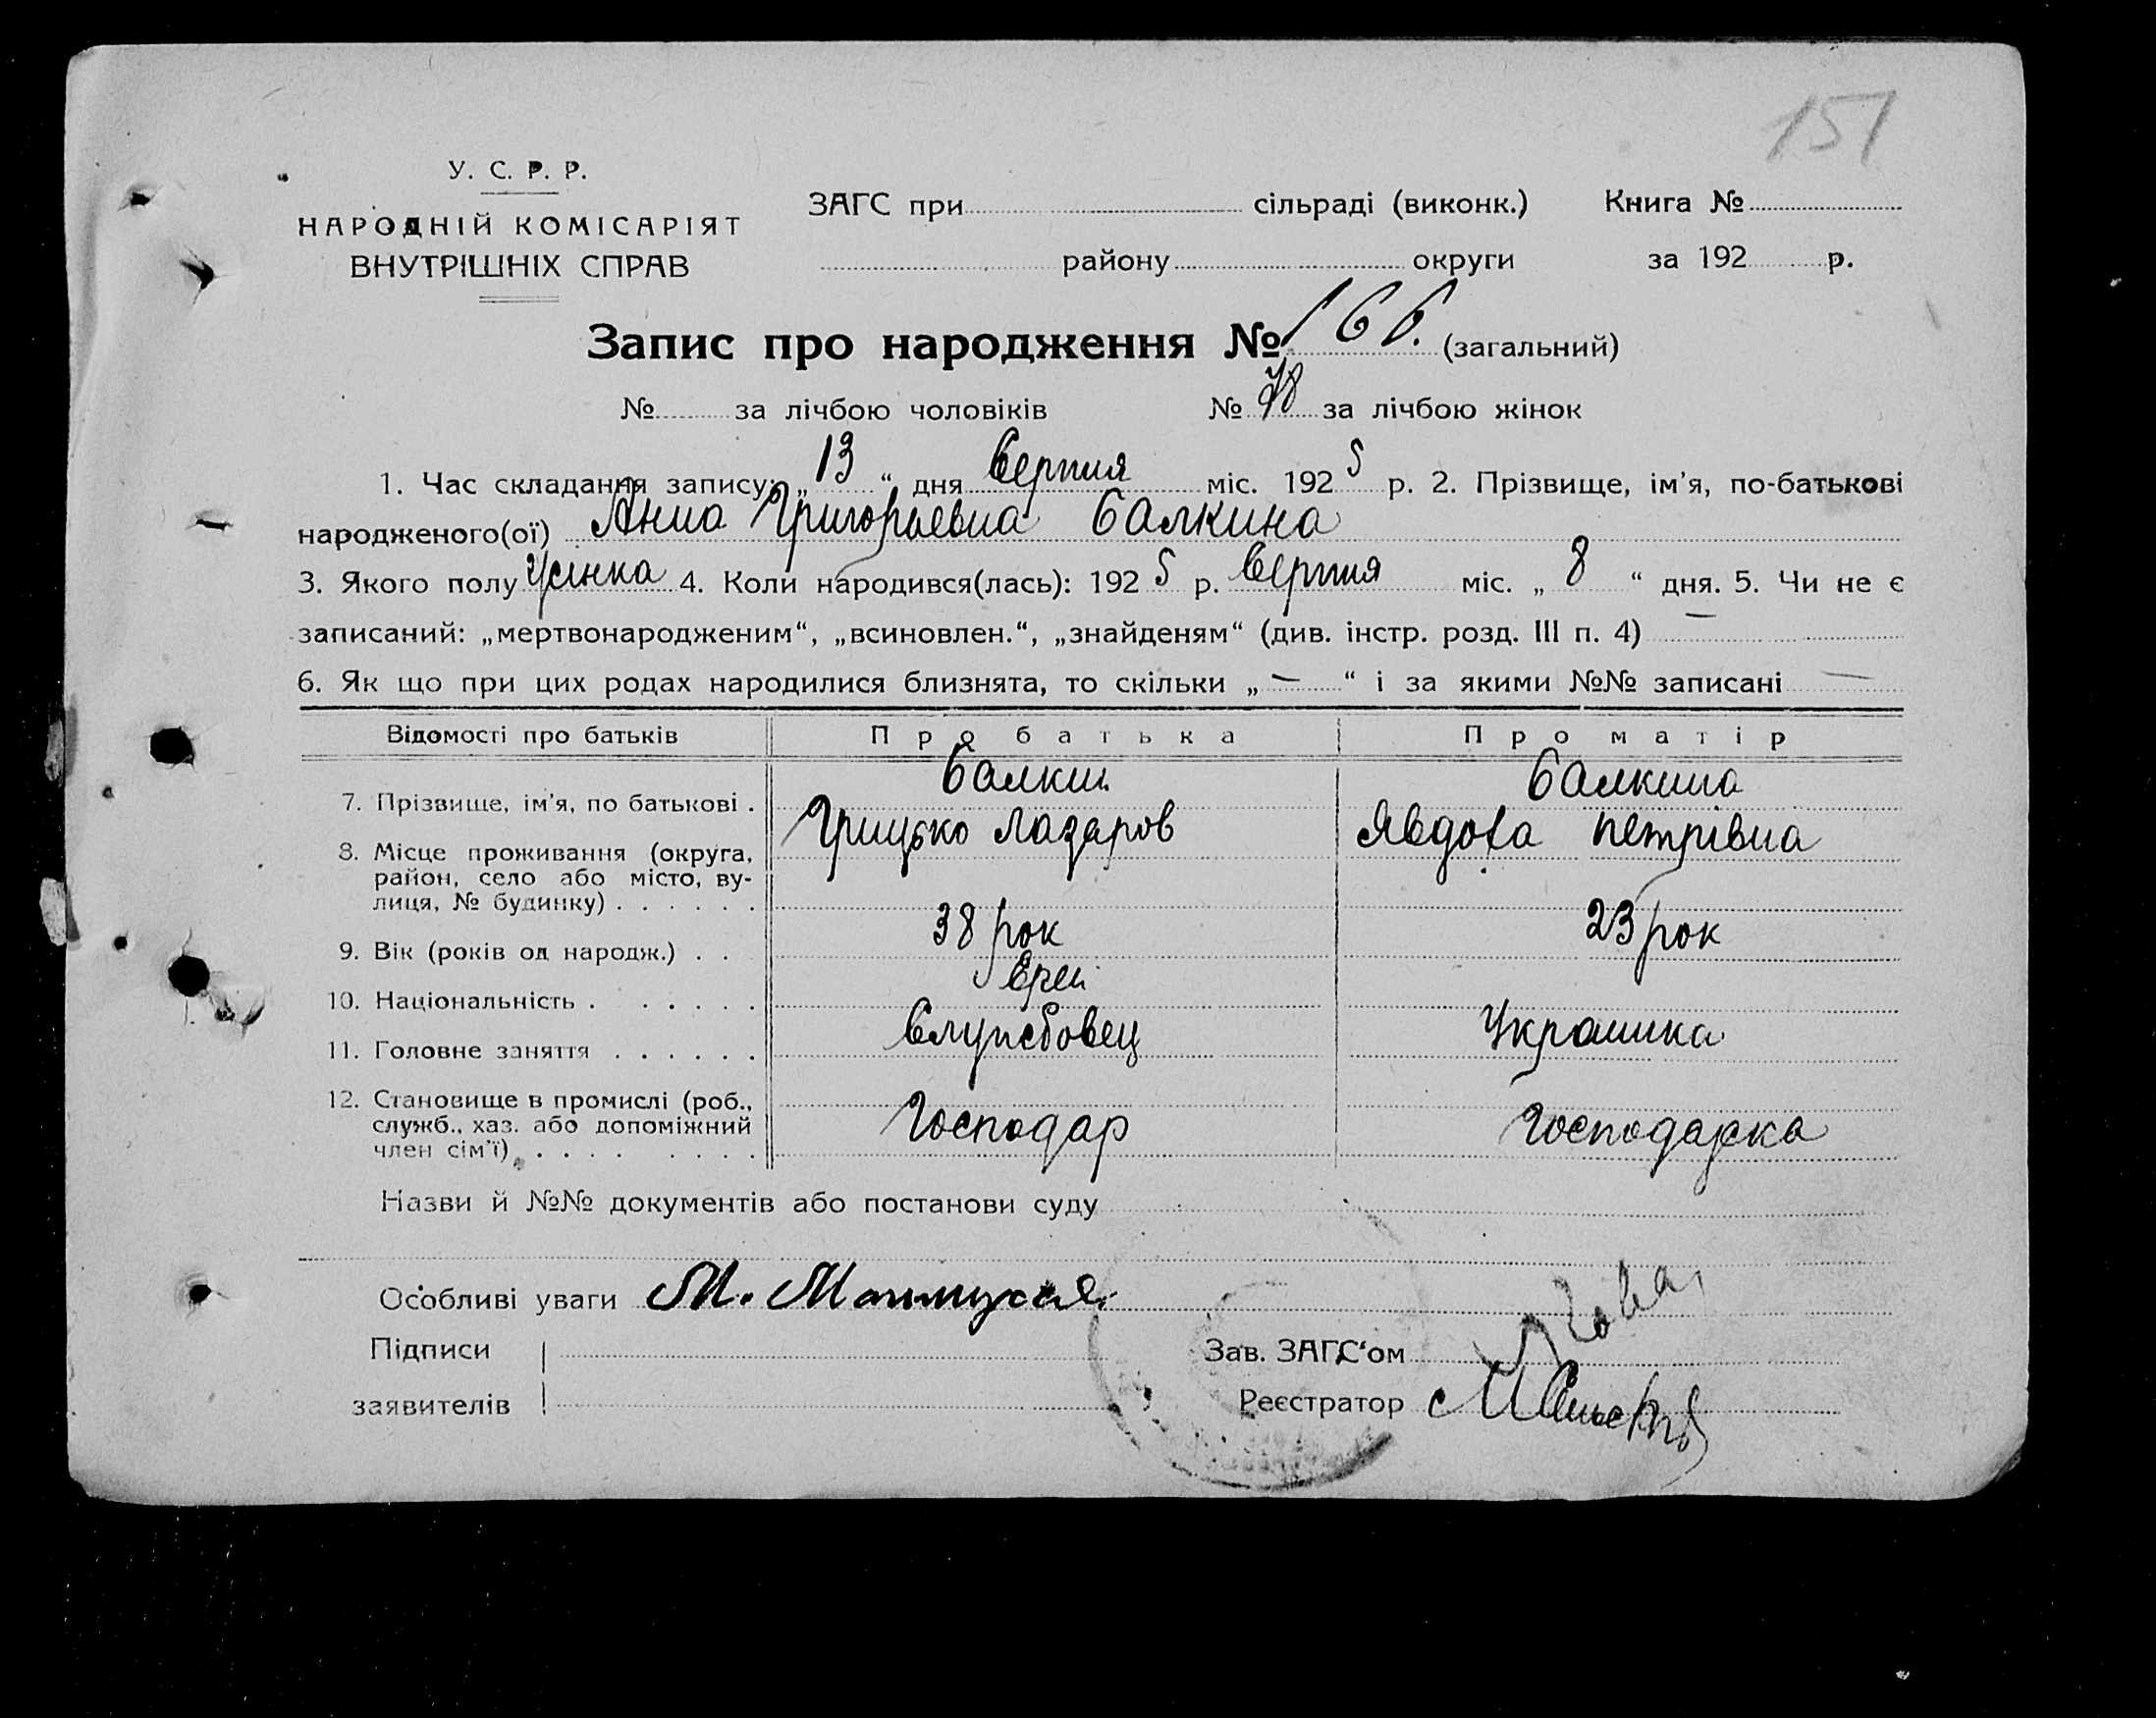 151
У. С. Р. Р.
НАРОДНІЙ КОМІСАРІЯТ
ВНУТРІШНІХ СПРАВ
ЗАГС при сільраді (виконк.) Книга №
району округи за 192 р.
Запис про народження № 166. (загальний)
№ за лічбою чоловіків № за лічбою жінок
1. Час складання запису: „13“ дня Серпня міс. 1925 р. 2. Прізвище, ім'я, по-батькові
народженого(ої) Анна Григорьевна Балкина
3. Якого полу Жінка 4. Коли народився(лась): 1925 р. Серпня міс. „8“ дня. 5. Чи не є
записаний: „мертвонародженим“, „всиновлен.“, „знайденям“ (див. інстр. розд. III п. 4) —
6. Як що при цих родах народилися близнята, то скільки „—“ і за якими №№ записані —
Відомості про батьків Про батька Про матір
7. Прізвище, ім'я, по батькові . Балкин Балкина
Грицько Лазаров Явдоха Петрівна
8. Місце проживання (округа,
район, село або місто, ву-
лиця, № будинку) . . . . . .
9. Вік (років од народж.) . . 38 рок 23 рок
10. Національність . . . . . . Єврей Украинка
11. Головне заняття . . . . . . Службовец
12. Становище в промислі (роб.,
служб., хаз. або допоміжний
член сім'ї) . . . . . . . . Господар Господарка
Назви й №№ документів або постанови суду
Особливі уваги М.
Підписи
заявителів
Зав. ЗАГС'ом
Реєстратор